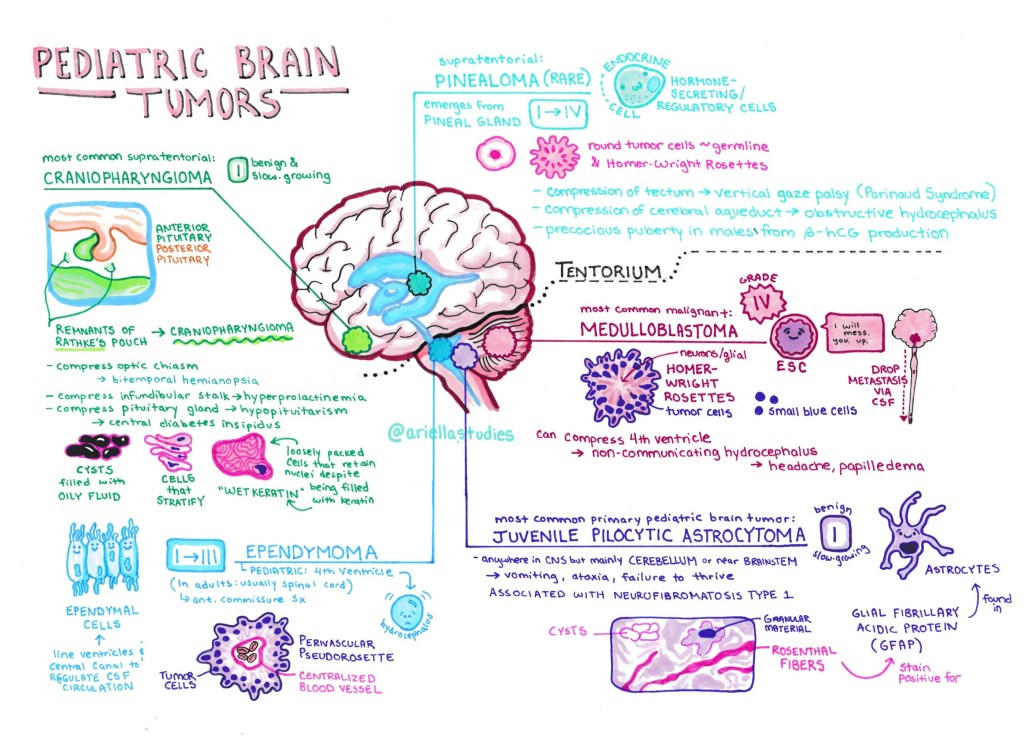 PEDIATRIC BRAIN
TUMORS
supratentorial:
PINEALOMA (RARE)
emerges from
PINEAL GLAND
I → IV
ENDOCRINE
CELL
HORMONE-
SECRETING/
REGULATORY CELLS
round tumor cells ~ germline
& Homer-Wright Rosettes
- compression of tectum → vertical gaze palsy (Parinaud Syndrome)
- compression of cerebral aqueduct → obstructive hydrocephalus
- precocious puberty in males from β-hCG production
most common supratentorial:
CRANIOPHARYNGIOMA
I
benign &
slow-growing
ANTERIOR
PITUITARY
POSTERIOR
PITUITARY
REMNANTS OF
RATHKE'S POUCH
→ CRANIOPHARYNGIOMA
- compress optic chiasm
→ bitemporal hemianopsia
- compress infundibular stalk → hyperprolactinemia
- compress pituitary gland → hypopituitarism
→ central diabetes insipidus
CYSTS
filled with
OILY FLUID
CELLS
that
STRATIFY
"WET KERATIN"
loosely packed
cells that retain
nuclei despite
being filled
with keratin
TENTORIUM
@ariellastudies
most common malignant:
MEDULLOBLASTOMA
GRADE
IV
ESC
I will
mess.
you. up.
DROP
METASTASIS
VIA
CSF
neurons/glial
HOMER-
WRIGHT
ROSETTES
tumor cells
small blue cells
can compress 4th ventricle
→ non-communicating hydrocephalus
→ headache, papilledema
most common primary pediatric brain tumor:
JUVENILE PILOCYTIC ASTROCYTOMA
benign
I
slow-growing
ASTROCYTES
- anywhere in CNS but mainly CEREBELLUM or near BRAINSTEM
→ vomiting, ataxia, failure to thrive
ASSOCIATED WITH NEUROFIBROMATOSIS TYPE 1
CYSTS
GRANULAR
MATERIAL
ROSENTHAL
FIBERS
GLIAL FIBRILLARY
ACIDIC PROTEIN
(GFAP)
found
in
stain
positive for
I → III
EPENDYMOMA
PEDIATRIC: 4th ventricle
(In adults: usually spinal cord)
↳ ant. commissure sx
hydrocephalus
EPENDYMAL
CELLS
line ventricles &
central canal to
REGULATE CSF
CIRCULATION
PERIVASCULAR
PSEUDOROSETTE
TUMOR
CELLS
CENTRALIZED
BLOOD VESSEL